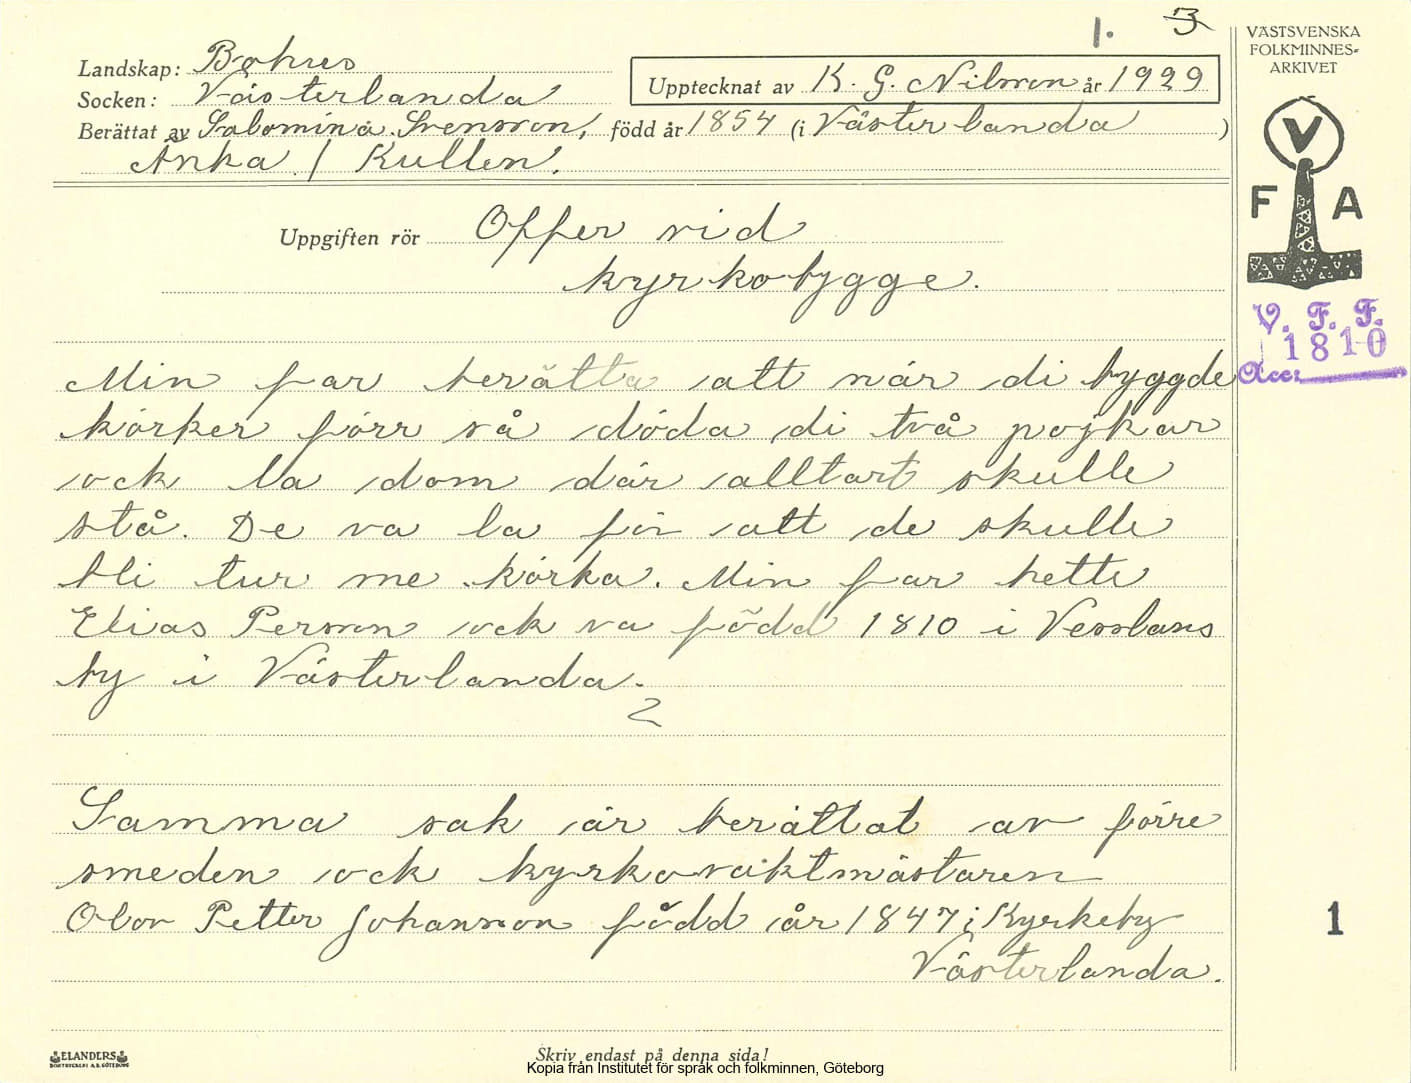 1. 3
VÄSTSVENSKA
FOLKMINNES-
ARKIVET
Landskap: Bohus
Upptecknat av K. G. Nilsson år 1929
Socken: Västerlanda
Berättat av Salomina Svensson, född år 1854 (i Västerlanda)
Änka / Kullen.
V
F A
Uppgiften rör Offer vid
kyrkobygge.
V. F. F.
1810
Acc:
Min far berätta att när di byggde
körker förr så döda di två pojkar
ock la dom där alltart skulle
stå. De va la för att de skulle
bli tur me körka. Min far hette
Elias Persson ock va född 1810 i Vesslans
by i Västerlanda.
Samma sak är berättat av förre
smeden ock kyrkovaktmästaren
Olov Petter Johansson född år 1847 i Kyrkeby
Västerlanda.
1
ELANDERS
BOKTRYCKERI A.B. GÖTEBORG
Skriv endast på denna sida!
Kopia från Institutet för språk och folkminnen, Göteborg